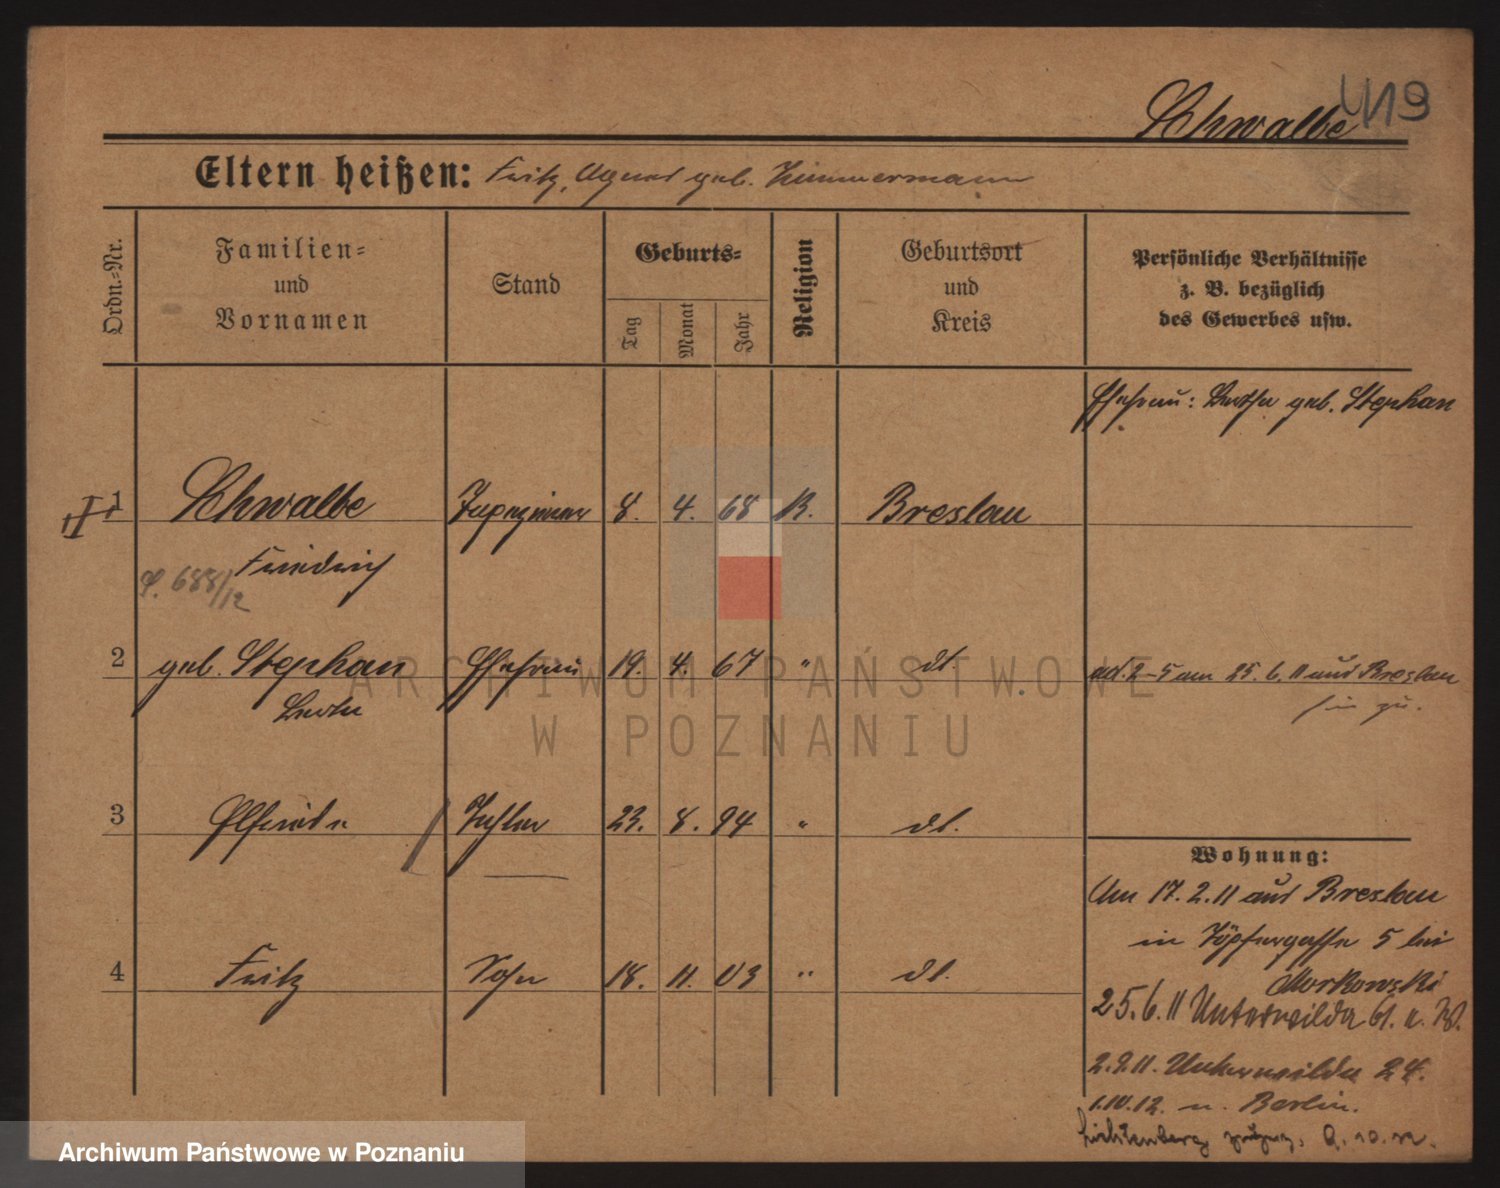 Schwalbe 419
Eltern heißen: Fritz, Agnes geb. Zimmermann
Ordn.-Nr.
Familien-
und
Vornamen
Stand
Geburts-
Tag
Monat
Jahr
Religion
Geburtsort
und
Kreis
Persönliche Verhältnisse
z. B. bezüglich
des Gewerbes usw.
Ehefrau: Bertha geb. Stephan
1 Schwalbe Tapezierer 8. 4. 68 K. Breslau
Friedrich
688/12
2 geb. Stephan Ehefrau 19. 4. 67 " dt.
Berta
ad. 2-5 am 25. 6. 11 aus Breslau
hier zu.
3 Elfriede Tochter 23. 8. 94 " dt.
4 Fritz Sohn 18. 11. 03 " dt.
Wohnung:
Am 17. 2. 11 aus Breslau
in Töpfergasse 5 bei
Morkowski
25. 6. 11 Unterwilda 61. u. W.
2. 9. 11. Unterwilda 24.
1.10.12. n. Berlin.
Lichtenberg
ARCHIWUM PAŃSTWOWE
W POZNANIU
Archiwum Państwowe w Poznaniu